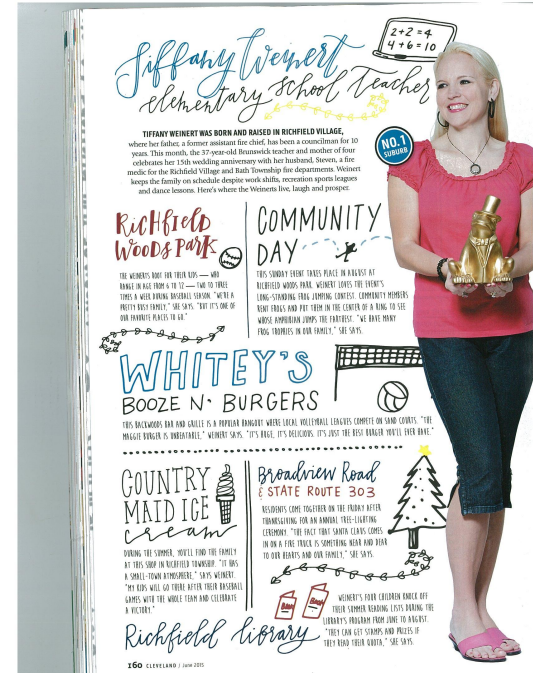 2+2=4
4+6=10
Tiffany Weinert
elementary school teacher
NO.1
SUBURB
TIFFANY WEINERT WAS BORN AND RAISED IN RICHFIELD VILLAGE,
where her father, a former assistant fire chief, has been a councilman for 10
years. This month, the 37-year-old Brunswick teacher and mother of four
celebrates her 15th wedding anniversary with her husband, Steven, a fire
medic for the Richfield Village and Bath Township fire departments. Weinert
keeps the family on schedule despite work shifts, recreation sports leagues
and dance lessons. Here's where the Weinerts live, laugh and prosper.
RICHFIELD
WOODS PARK
THE WEINERTS ROOT FOR THEIR KIDS — WHO
RANGE IN AGE FROM 6 TO 12 — TWO TO THREE
TIMES A WEEK DURING BASEBALL SEASON. "WE'RE A
PRETTY BUSY FAMILY," SHE SAYS. "BUT IT'S ONE OF
OUR FAVORITE PLACES TO GO."
COMMUNITY
DAY
THIS SUNDAY EVENT TAKES PLACE IN AUGUST AT
RICHFIELD WOODS PARK. WEINERT LOVES THE EVENT'S
LONG-STANDING FROG JUMPING CONTEST. COMMUNITY MEMBERS
RENT FROGS AND PUT THEM IN THE CENTER OF A RING TO SEE
WHOSE AMPHIBIAN JUMPS THE FARTHEST. "WE HAVE MANY
FROG TROPHIES IN OUR FAMILY," SHE SAYS.
WHITEY'S
BOOZE N' BURGERS
THIS BACKWOODS BAR AND GRILLE IS A POPULAR HANGOUT WHERE LOCAL VOLLEYBALL LEAGUES COMPETE ON SAND COURTS. "THE
MAGGIE BURGER IS UNBEATABLE," WEINERT SAYS. "IT'S HUGE. IT'S DELICIOUS. IT'S JUST THE BEST BURGER YOU'LL EVER HAVE."
COUNTRY
MAID ICE
cream
DURING THE SUMMER, YOU'LL FIND THE FAMILY
AT THIS SHOP IN RICHFIELD TOWNSHIP. "IT HAS
A SMALL-TOWN ATMOSPHERE," SAYS WEINERT.
"MY KIDS WILL GO THERE AFTER THEIR BASEBALL
GAMES WITH THE WHOLE TEAM AND CELEBRATE
A VICTORY."
Broadview Road
& STATE ROUTE 303
RESIDENTS COME TOGETHER ON THE FRIDAY AFTER
THANKSGIVING FOR AN ANNUAL TREE-LIGHTING
CEREMONY. "THE FACT THAT SANTA CLAUS COMES
IN ON A FIRE TRUCK IS SOMETHING NEAR AND DEAR
TO OUR HEARTS AND OUR FAMILY," SHE SAYS.
Richfield library
WEINERT'S FOUR CHILDREN KNOCK OFF
THEIR SUMMER READING LISTS DURING THE
LIBRARY'S PROGRAM FROM JUNE TO AUGUST.
"THEY CAN GET STAMPS AND PRIZES IF
THEY READ THEIR QUOTA," SHE SAYS.
160 CLEVELAND / June 2015